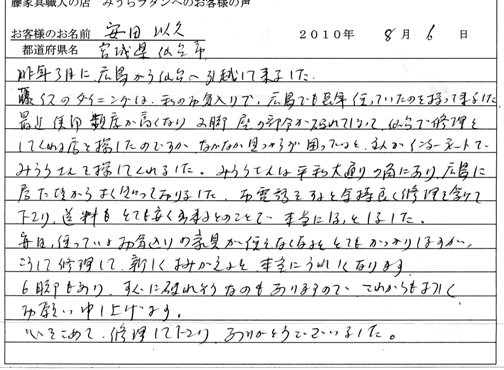 藤家具職人の店 みうらラタンへのお客様の声
お客様のお名前 安田 2010年 8月 6日
都道府県名 宮城県仙台市
昨年3月に、広島から仙台へ引越して来ました。
藤イスのダイニングは、私のお気入りで、広島でも長年使っていたのを持って来ました
最近使用頻度が高くなり 2脚 座の部分が破れてしまって、仙台で修理を
してくれる店を探したのですが、なかなか見つからず困っていると、主人がインターネットで
みうらさんを探してくれました。みうらさんは平和大通りの角にあり、広島に
居た頃からよく知っておりました。お電話をすると気持良く修理を受けて
下さり、送料もとても安く出来るとのことで、本当にほっとしました。
毎日、使っているお気入りの家具が使えなくなるととてもがっかりしますが、
こうして修理して、新しくよみがえると本当にうれしくなります。
6脚もあり、すぐに破れそうなのもありますので、これからもよろしく
お願い申し上げます。
心をこめて、修理して下さり、ありがとうございました。